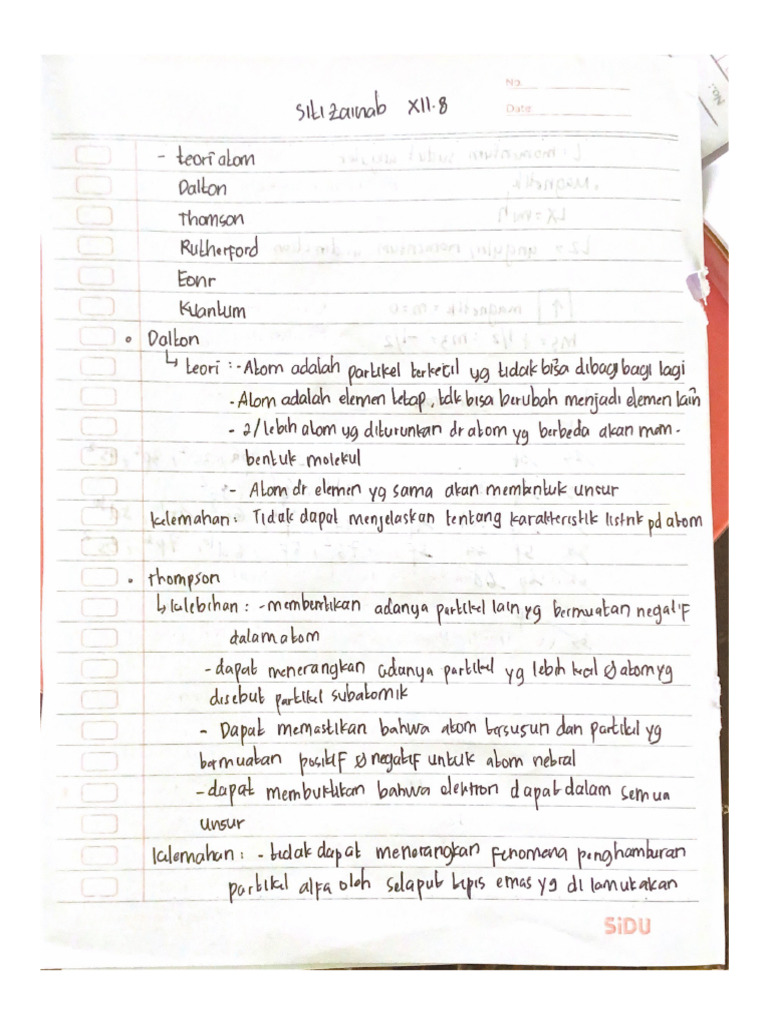 No.
Siti Zainab XII.8
Date
- teori atom
Dalton
Thomson
Rutherford
Eohr
Kuantum
• Dalton
↳ teori : - Atom adalah partikel terkecil yg tidak bisa dibagi bagi lagi
- Atom adalah elemen tetap, tdk bisa berubah menjadi elemen lain
- 2/lebih atom yg diturunkan dr atom yg berbeda akan mem-
bentuk molekul
- Atom dr elemen yg sama akan membentuk unsur
kelemahan : Tidak dapat menjelaskan tentang karakteristik listrik pd atom
• thompson
↳ kelebihan : - membuktikan adanya partikel lain yg bermuatan negatif
dalam atom
- dapat menerangkan adanya partikel yg lebih kecil atom yg
disebut partikel subatomik
- Dapat memastikan bahwa atom tersusun dan partikel yg
bermuatan positif negatif untuk atom netral
- dapat membuktikan bahwa elektron dapat dalam semua
unsur
kelemahan : - tidak dapat menerangkan fenomena penghamburan
partikel alfa oleh selaput tipis emas yg di
SiDU